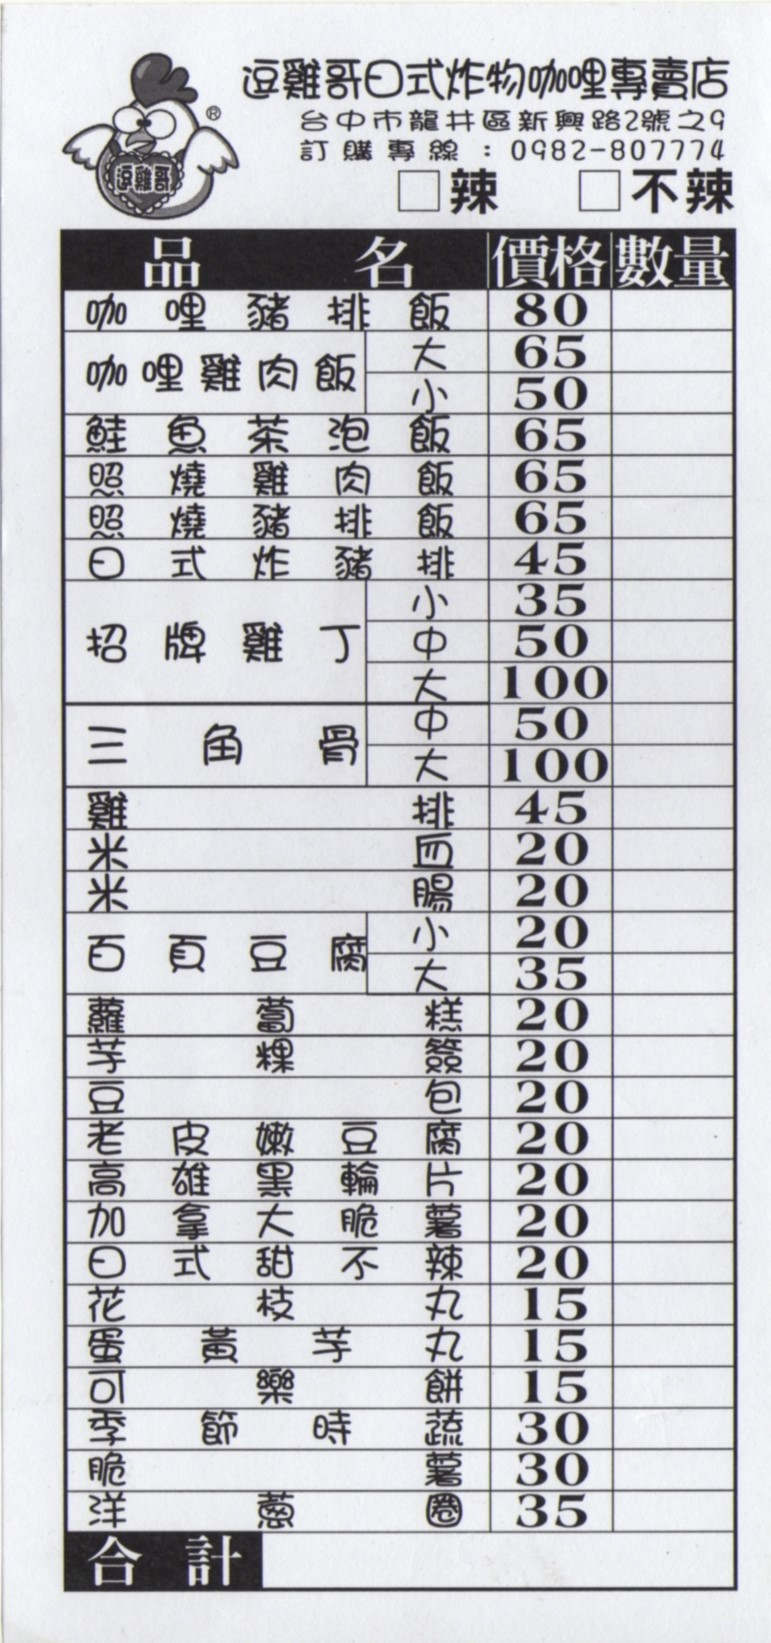 逗雞哥日式炸物咖哩專賣店
台中市龍井區新興路2號之9
訂購專線：0982-807774
®
逗雞哥
□辣 □不辣
品名 價格 數量
咖哩豬排飯 80
咖哩雞肉飯 大 65
小 50
鮭魚茶泡飯 65
照燒雞肉飯 65
照燒豬排飯 65
日式炸豬排 45
招牌雞丁 小 35
中 50
大 100
三角骨 中 50
大 100
雞排 45
米血 20
米腸 20
百頁豆腐 小 20
大 35
蘿蔔糕 20
芋粿簽 20
豆包 20
老皮嫩豆腐 20
高雄黑輪片 20
加拿大脆薯 20
日式甜不辣 20
花枝丸 15
蛋黃芋丸 15
可樂餅 15
季節時蔬 30
脆薯 30
洋蔥圈 35
合計